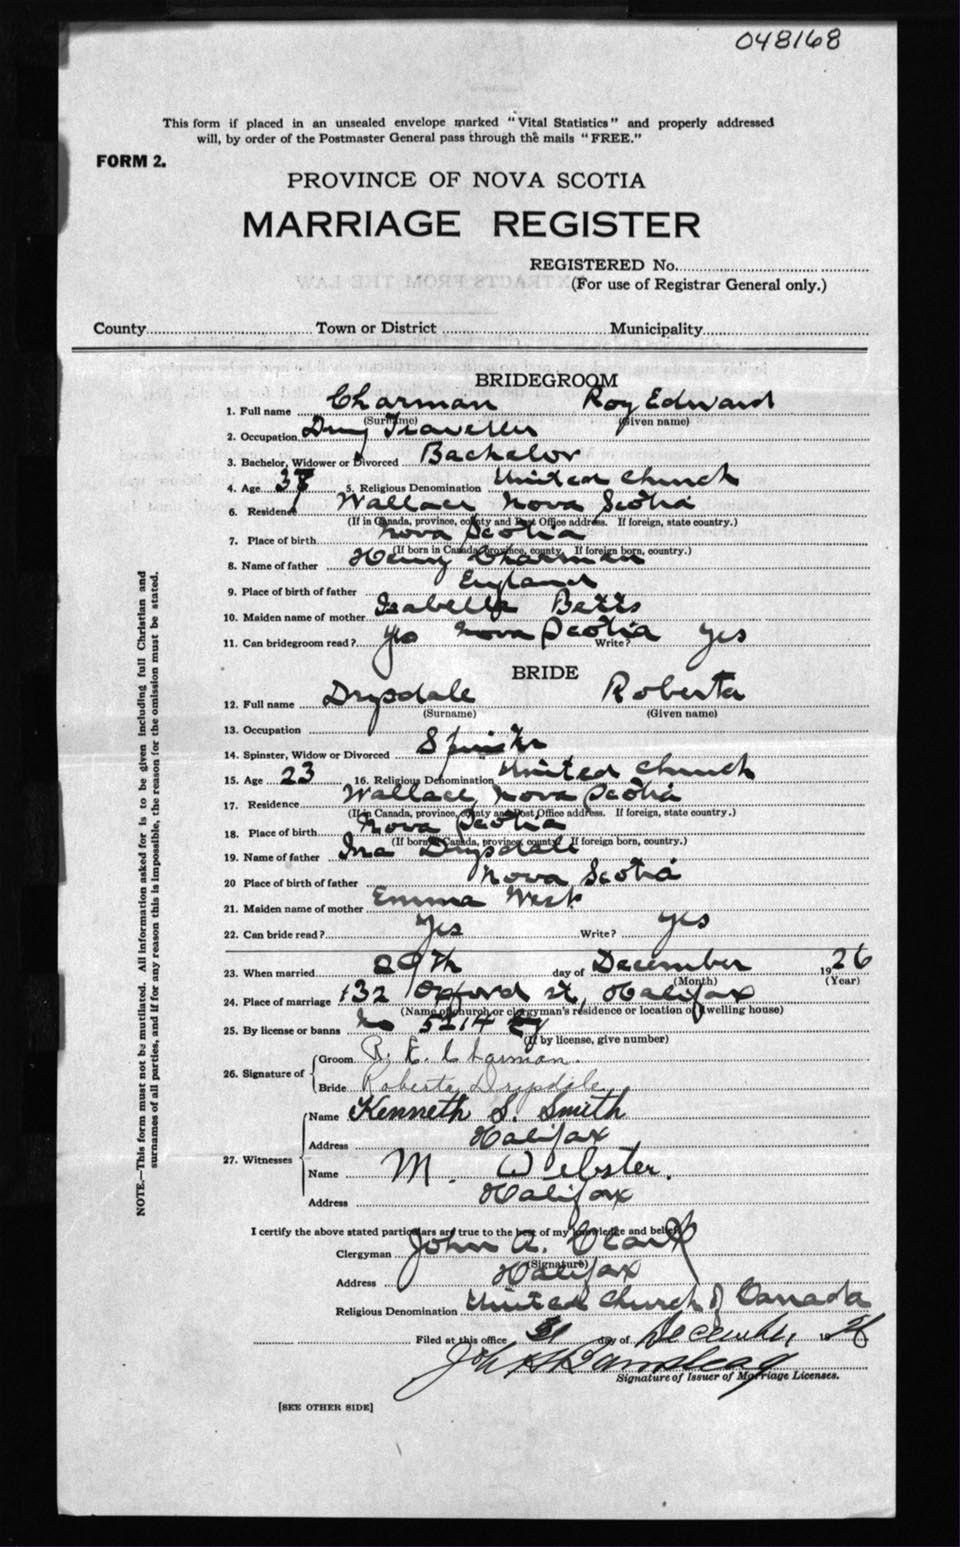 048168
This form if placed in an unsealed envelope marked "Vital Statistics" and properly addressed
will, by order of the Postmaster General pass through the mails "FREE."
FORM 2.
PROVINCE OF NOVA SCOTIA
MARRIAGE REGISTER
REGISTERED No.
(For use of Registrar General only.)
County Town or District Municipality
BRIDEGROOM
1. Full name Charman Roy Edward
(Surname) (Given name)
2. Occupation Traveller
3. Bachelor, Widower or Divorced Bachelor
4. Age 38 5. Religious Denomination United Church
6. Residence Wallace Nova Scotia
(If in Canada, province, county and Post Office address. If foreign, state country.)
7. Place of birth Nova Scotia
(If born in Canada, province, county. If foreign born, country.)
8. Name of father Henry Charman
9. Place of birth of father England
10. Maiden name of mother Isabella Betts
11. Can bridegroom read? yes Nova Scotia Write? yes
BRIDE
12. Full name Drysdale Roberta
(Surname) (Given name)
13. Occupation
14. Spinster, Widow or Divorced Spinster
15. Age 23 16. Religious Denomination United Church
17. Residence Wallace, Nova Scotia
(If in Canada, province, county and Post Office address. If foreign, state country.)
18. Place of birth Nova Scotia
(If born in Canada, province, county. If foreign born, country.)
19. Name of father Ira Drysdale
20 Place of birth of father Nova Scotia
21. Maiden name of mother Emma West
22. Can bride read? Yes Write? yes
23. When married 29th day of December 1926
(Month) (Year)
24. Place of marriage 132 Oxford St, Halifax
(Name of church or clergyman's residence or location of dwelling house)
25. By license or banns No 5214
(If by license, give number)
26. Signature of
Groom R. E. Charman
Bride Roberta Drysdale
27. Witnesses
Name Kenneth S. Smith
Address Halifax
Name M. Webster.
Address Halifax
I certify the above stated particulars are true to the best of my knowledge and belief
Clergyman John A. Clark
(Signature)
Address Halifax
Religious Denomination United Church of Canada
Filed at this office 31 day of December, 1926
Signature of Issuer of Marriage Licenses.
[SEE OTHER SIDE]
NOTE.—This form must not be mutilated. All information asked for is to be given including full Christian and
surnames of all parties, and if for any reason this is impossible, the reason for the omission must be stated.